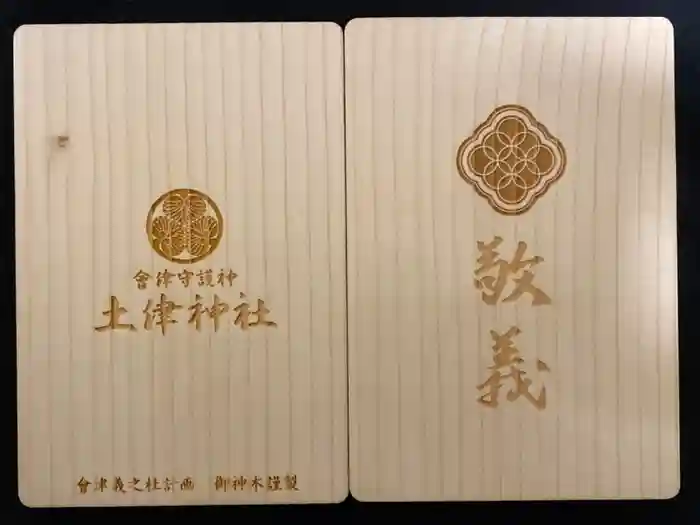 會津守護神
土津神社
會津義之杜計画　御神木謹製
敬義